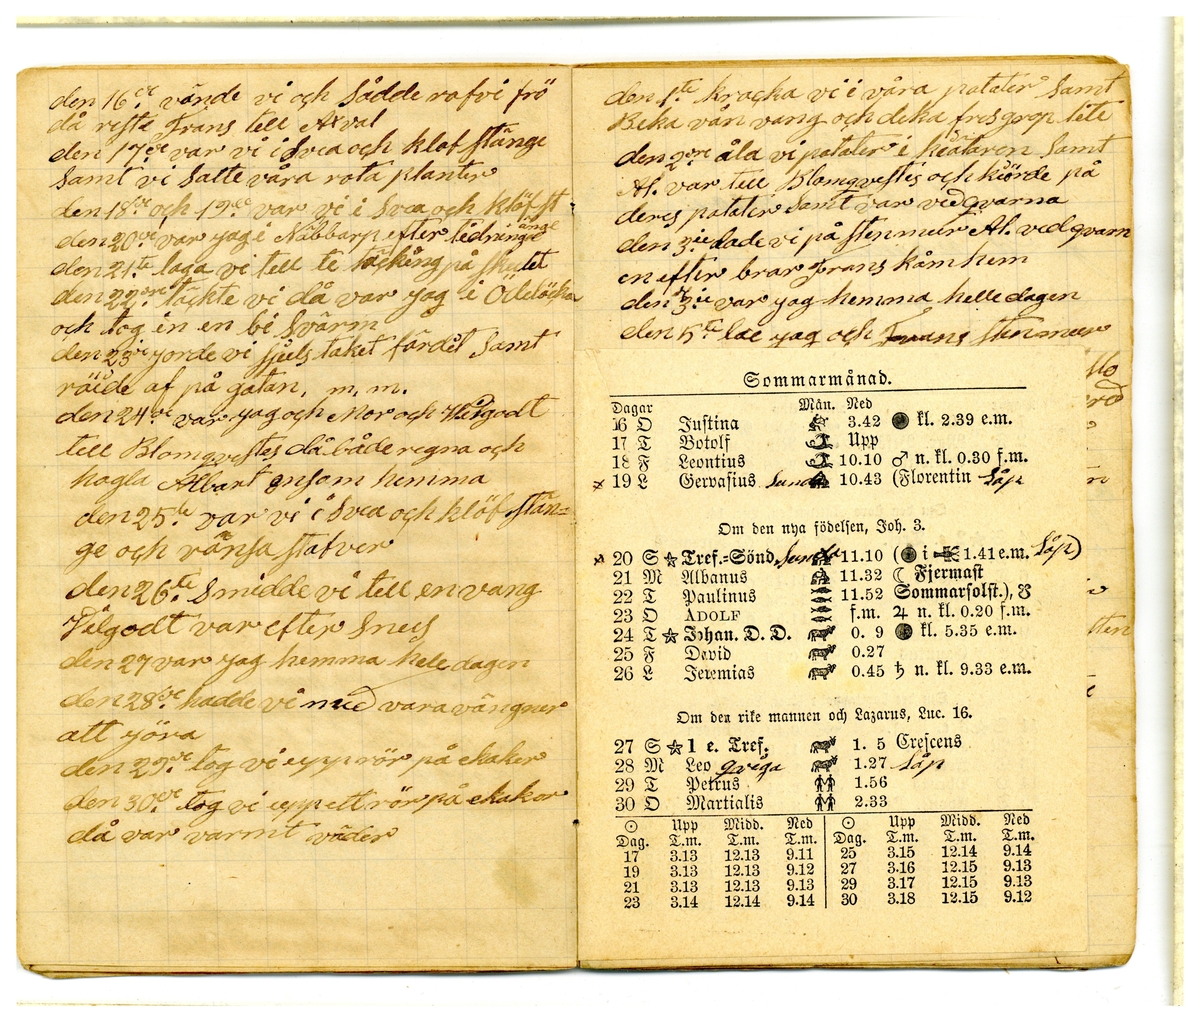 den 16de vände vi och Sådde rofvi frö
då reste Frans tell Axval
den 17de var vi i Svea och klöf stänge
Samt vi Satte våra rota planter
den 18de och 19de var vi i Svea och klöf st
änge
den 20de var jag i Nåbbarp efter tidninge
den 21te laga vi tell te täckång på skjulet
den 22dre täckte vi då var jag i Odelöcka
och tog in en bi Svärm
den 23je jorde vi sjuls taket färdet Samt
röide af på gatan, m, m.
den 24de var jag och Mor och Hilgodt
tell Blomqvestes då både regna och
hagla Albart ensom hemma
den 25te var vi i Svea och klöf stän=
ge och vänsa stafver
den 26te Smidde vi tell en vang
Hilgodt var efter Sneis
den 27 var jag hemma hele dagen
den 28de hadde vi med vara vängner
att jöra
den 29de tog vi upp rör på ekaker
den 30de tog vi upp ett rör på ekakor
då var varmt väder
den 1ste kracka vi i våra patater Samt
Beka vån vang och deka fresgrop lite
den 2dre åla vi patater i Samt
Al. var tell Blomqvestes och kiörde på
deres patater Samt var ved qvarna
den 3je lade vi på stenmur Al. ved qvarn
en efter brar Frans kåm hem
den 3je var jag hemma helle dagen
den 5te lae jag och Frans stenmur
Sommarmånad.
Dagar Mån. Ned
16 O Justina 3.42 kl. 2.39 e.m.
17 T Botolf Upp
18 F Leontius 10.10 ♂ n. kl. 0.30 f.m.
19 L Gervasius Sunda 10.43 (Florentin Såp
Om den nya födelsen, Joh. 3.
20 S ☆ Tref.=Sönd. Sunda 11.10 ( i 1.41 e.m. Såp)
21 M Albanus 11.32 ☾ Fjermast
22 T Paulinus 11.52 Sommarsolst.), ☿
23 O ADOLF f.m. ♃ n. kl. 0.20 f.m.
24 T ☆ Johan. D. D. 0. 9 kl. 5.35 e.m.
25 F David 0.27
26 L Jeremias 0.45 ♄ n. kl. 9.33 e.m.
Om den rike mannen och Lazarus, Luc. 16.
27 S ☆ 1 e. Tref. 1. 5 Crescens
28 M Leo qviga 1.27 Såp
29 T Petrus 1.56
30 O Martialis 2.33
☉ Upp Midd. Ned ☉ Upp Midd. Ned
Dag. T.m. T.m. T.m. Dag. T.m. T.m. T.m.
17 3.13 12.13 9.11 25 3.15 12.14 9.14
19 3.13 12.13 9.12 27 3.16 12.15 9.13
21 3.13 12.13 9.13 29 3.17 12.15 9.13
23 3.14 12.14 9.14 30 3.18 12.15 9.12